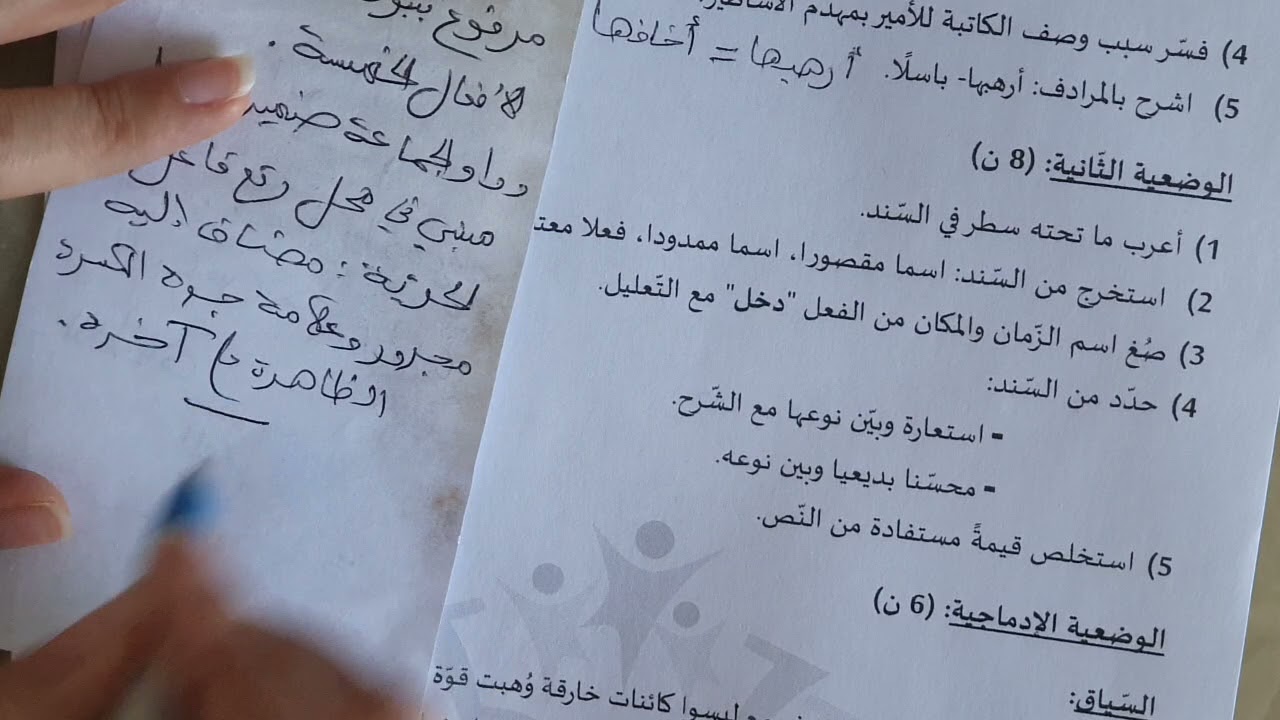 4) فسّر سبب وصف الكاتبة للأمير بمهدم الأساطير.
5) اشرح بالمرادف: أرهبها- باسلًا. أرهبها = أخافها
الوضعية الثّانية: (8 ن)
1) أعرب ما تحته سطر في السّند.
2) استخرج من السّند: اسما مقصورا، اسما ممدودا، فعلا
3) صُغ اسم الزّمان والمكان من الفعل "دخل" مع التّعليل.
4) حدّد من السّند:
▪ استعارة وبيّن نوعها مع الشّرح.
▪ محسّنا بديعيا وبين نوعه.
5) استخلص قيمةً مستفادة من النّص.
الوضعية الإدماجية: (6 ن)
السّياق:
ليسوا كائنات خارقة وُهبت قوّة
مرفوع
الأفعال الخمسة.
وواو الجماعة ضمير
مبني في محل رفع فاعل
الحريّة: مضاف إليه
مجرور وعلامة جره الكسرة
الظاهرة على آخره.